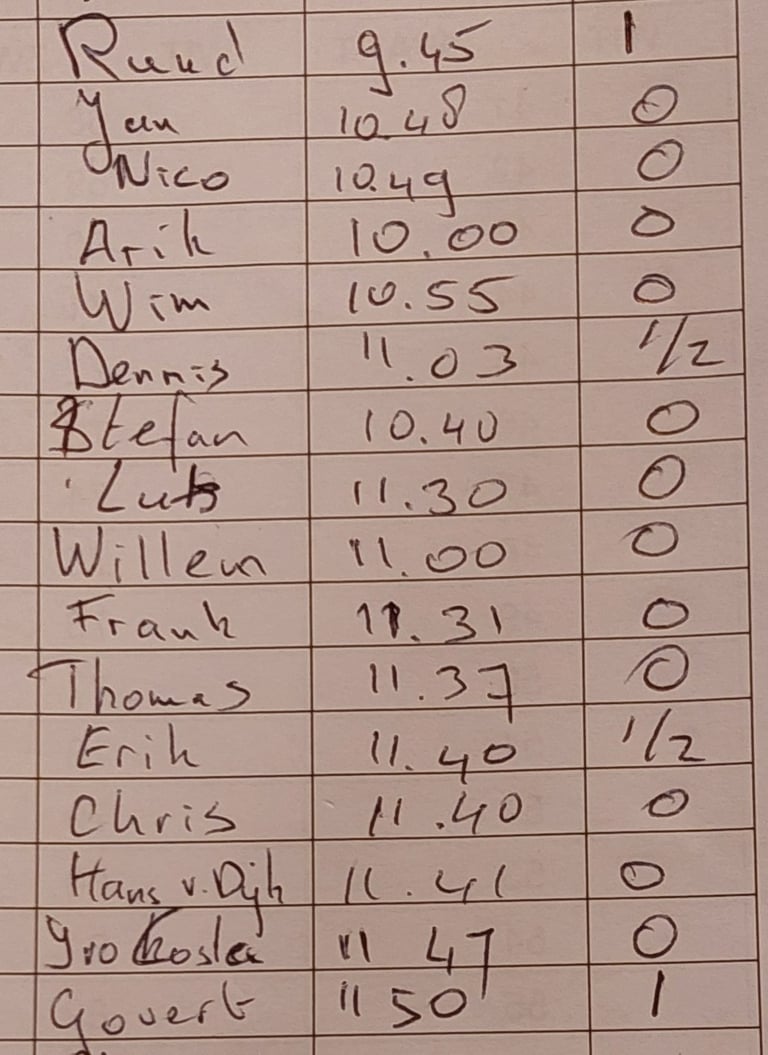 Ruud 9.45 1
Jan 10.48 0
Nico 10.49 0
Arik 10.00 0
Wim 10.55 0
Dennis 11.03 1/2
Stefan 10.40 0
11.30 0
Willem 11.00 0
Frank 11.31 0
Thomas 11.37 0
Erik 11.40 1/2
Chris 11.40 0
Hans v. Dijk 11.41 0
11 47 0
Govert 11 50 1